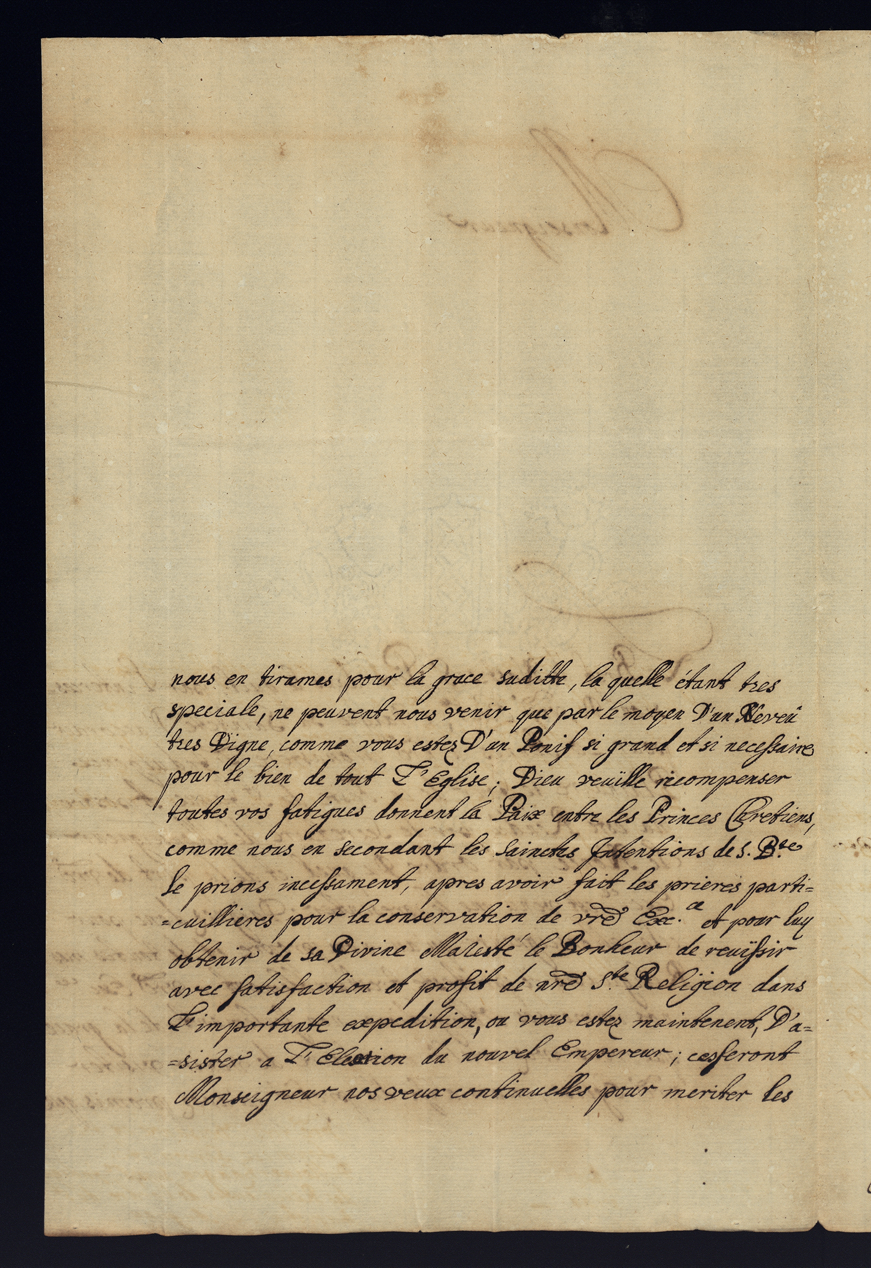 nous en tirames pour la grace suditte, la quelle étant tres
speciale, ne peuvent nous venir que par le moyen D'un Neveü
tres Digne, comme vous estez D'un Ponif si grand et si necessaire
pour le bien de tout L'Eglise; Dieu veüille recompenser
toutes vos fatigues donnent la Paix entre les Princes Chretiens,
comme nous en secondant les sainctes Intentions de S. B.te
le prions incessament, apres avoir fait les prieres parti=
=cuillieres pour la conservation de vré Ex.ce et pour luy
obtenir de sa Divine Maiesté le Bonheur de reüissir
avec satisfaction et profit de nré S.te Religion dans
L'importante expedition, ou vous estez maintenent, D'a=
=sister a L'Election du nouvel Empereur; cesseront
Monseigneur nos veux continuelles pour meriter les